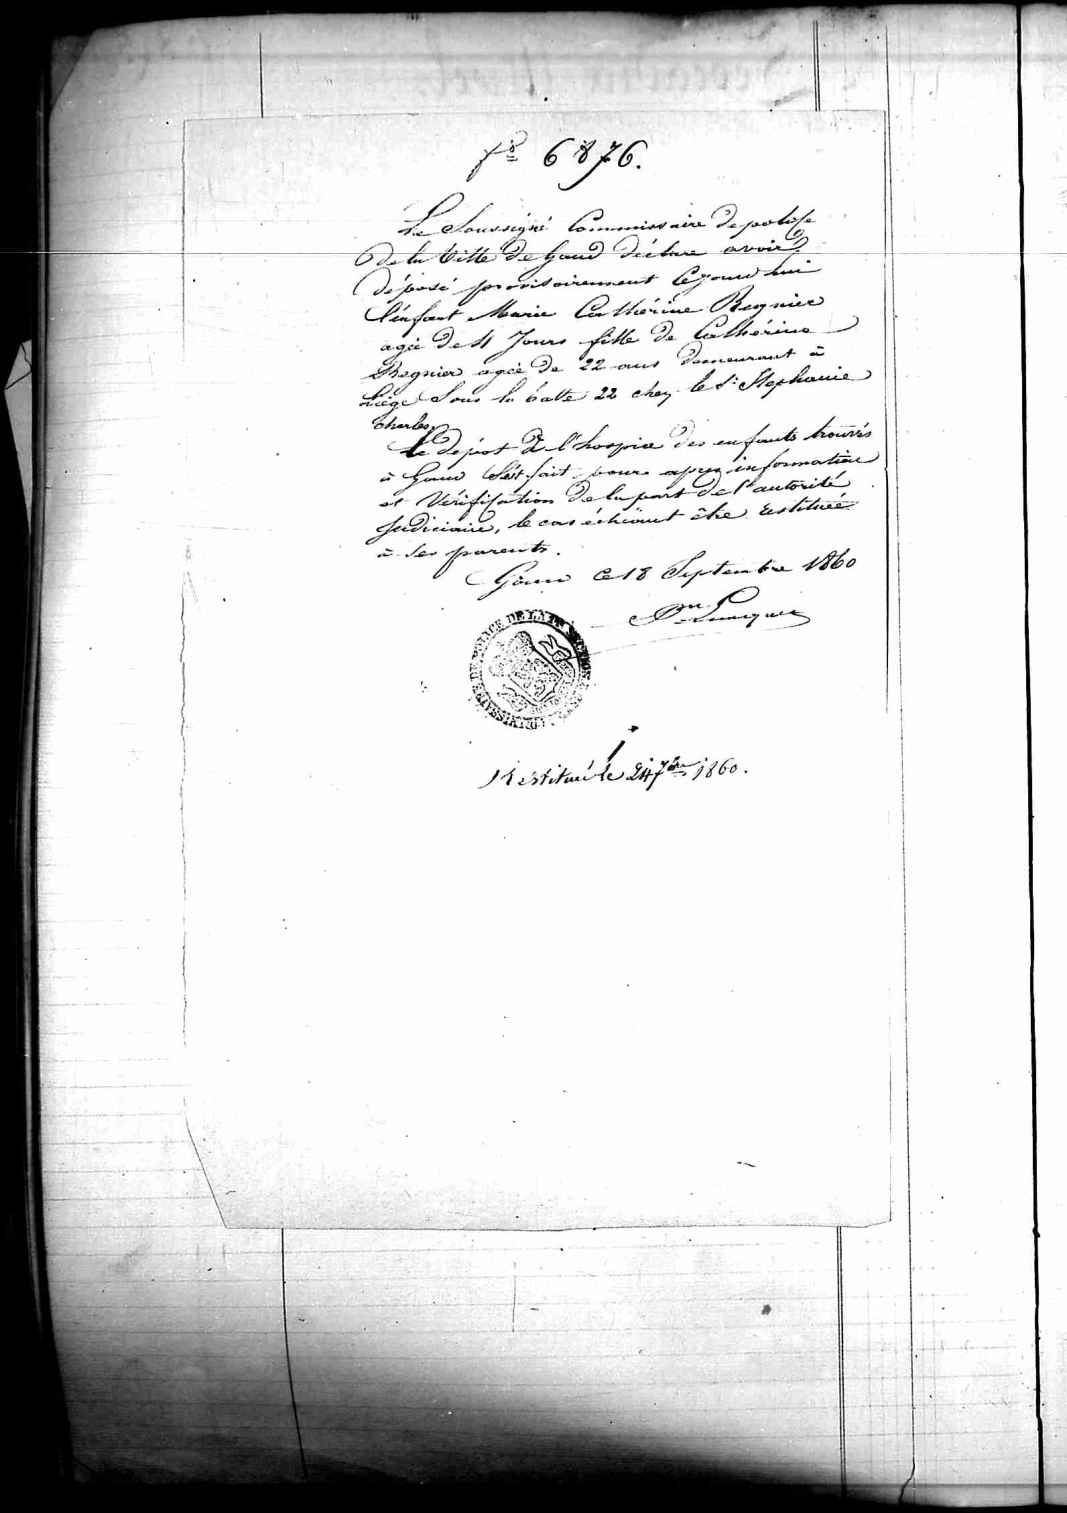 fo 6876.
Le Soussigné Commissaire de police
de la Ville de Gand déclare avoir
déposé provisoirement ce jourd'hui
l'enfant Marie Cathérine Regnier
agée de 4 Jours fille de Cathérine
Regnier agée de 22 ans demeurant à
Liège Sous la batte 22 chez le Sr Stephanie
Charles.
Le dépot à l'hospice des enfants trouvés
à Gand s'est fait pour apres information
et Vérification de la part de l'autorité
Judiciaire, le cas échéant être restituée
à ses parents.
Gand ce 18 Septembre 1860
COMMISSARIAT DE POLICE DE LA SECTION
Restitué le 24 7bre 1860.